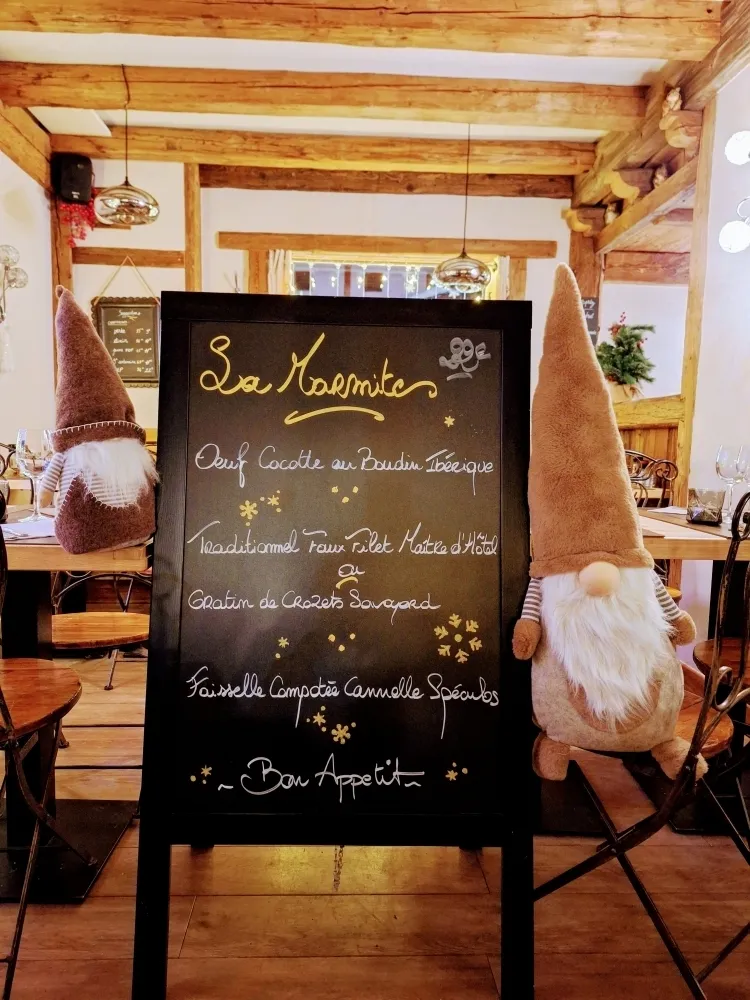 La Marmite
Oeuf Cocotte au Boudin Ibérique
Traditionnel Faux Filet Maitre d'Hôtel
ou
Gratin de Crozets Savoyard
Faisselle Compotée Cannelle Spéculos
~ Bon Appetit ~